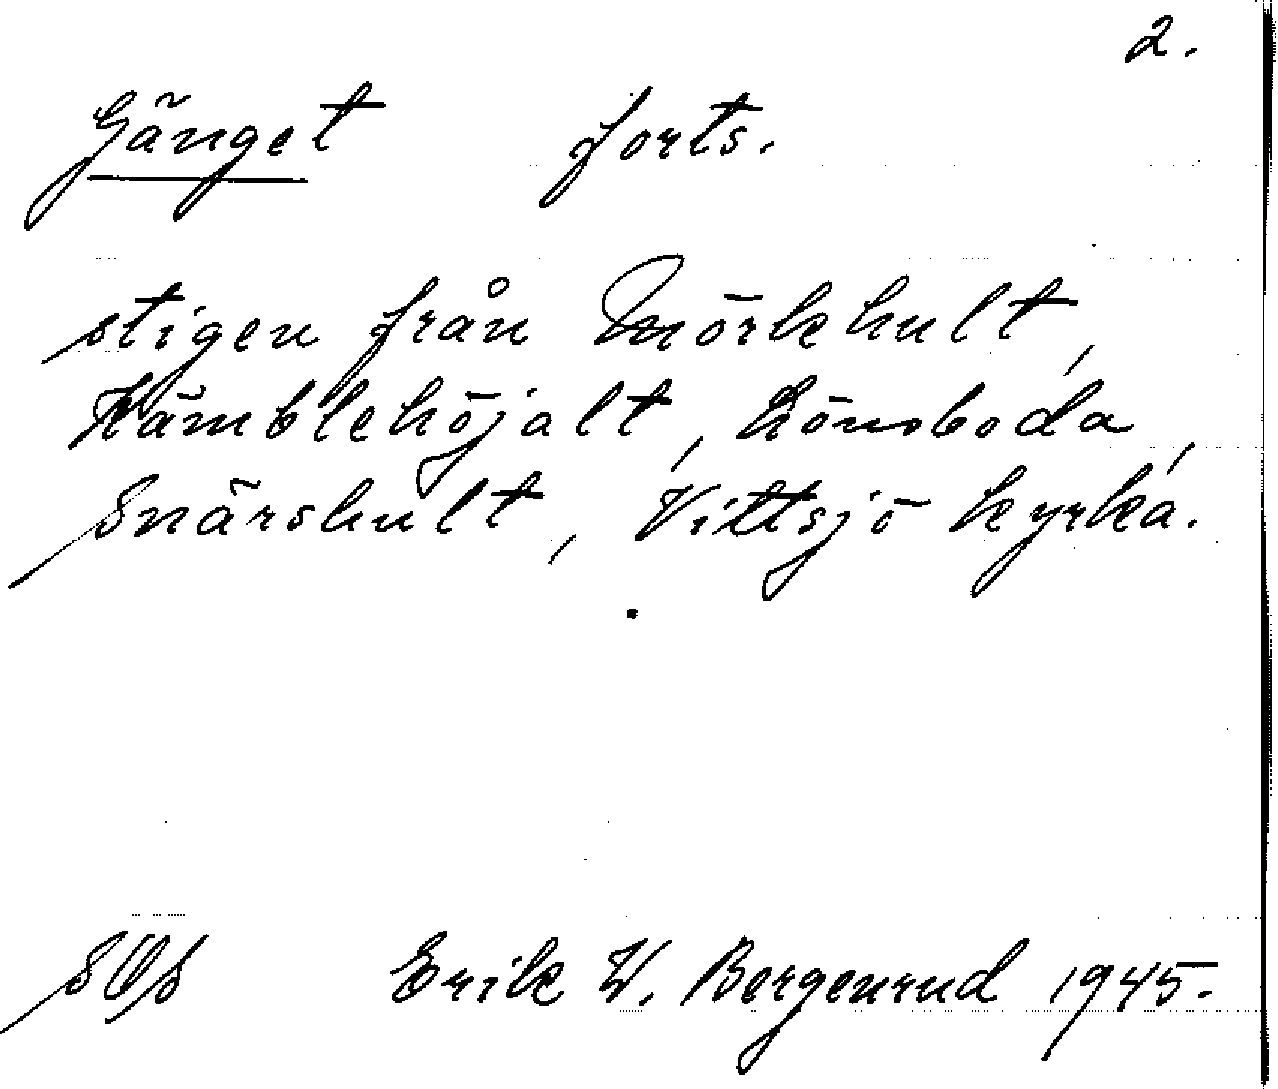 2.
Gänget forts.
stigen från Mörkhult,
Hämblehöjalt, Lönsboda,
Snärshult, Vittsjö kyrka.
SOs Erik W. Bergenrud 1945.